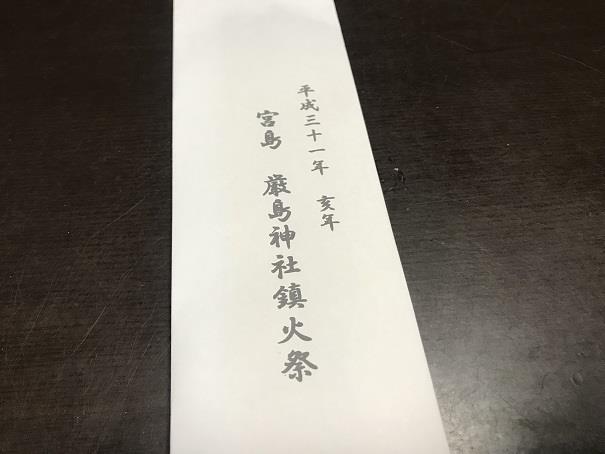 平成三十一年　亥年
宮島　厳島神社鎮火祭